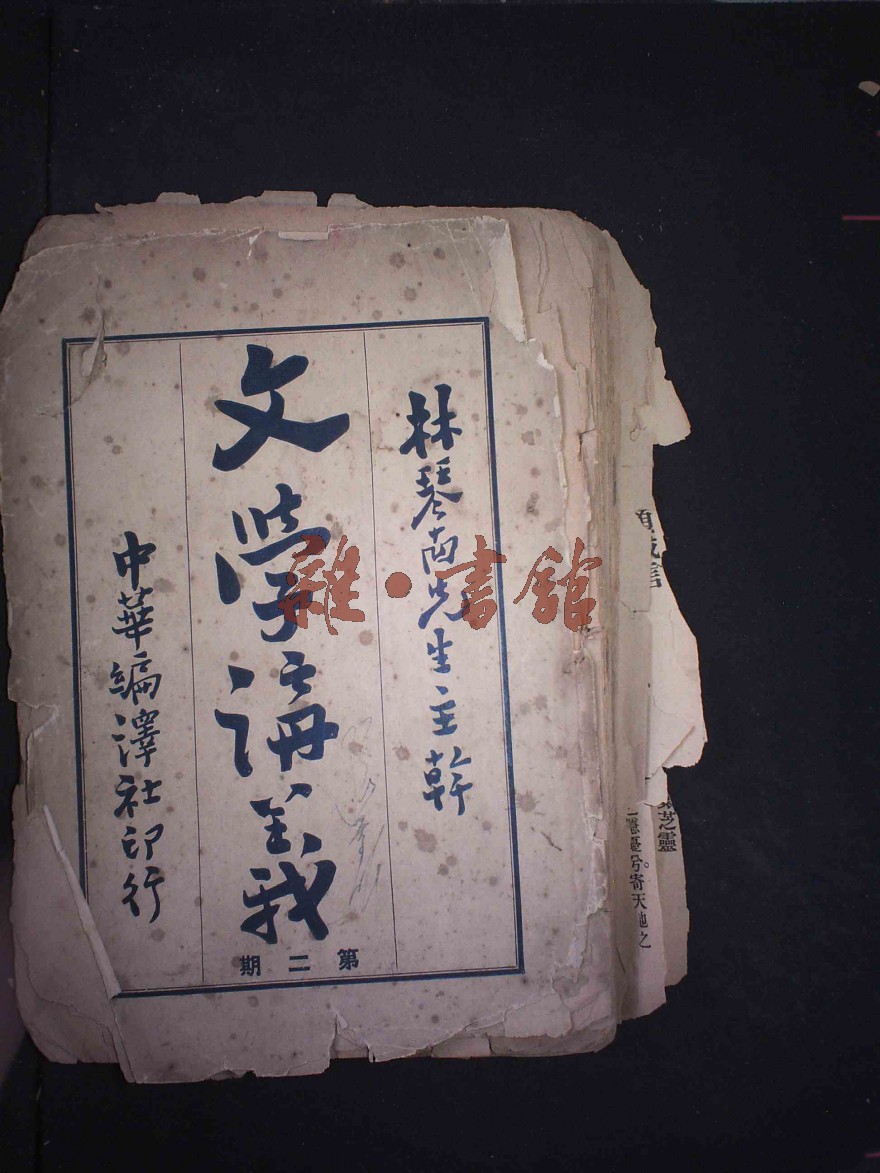 林琴南先生主幹
文學講義
第二期
中華編譯社印行
雜·書館
之靈
兮寄天地之